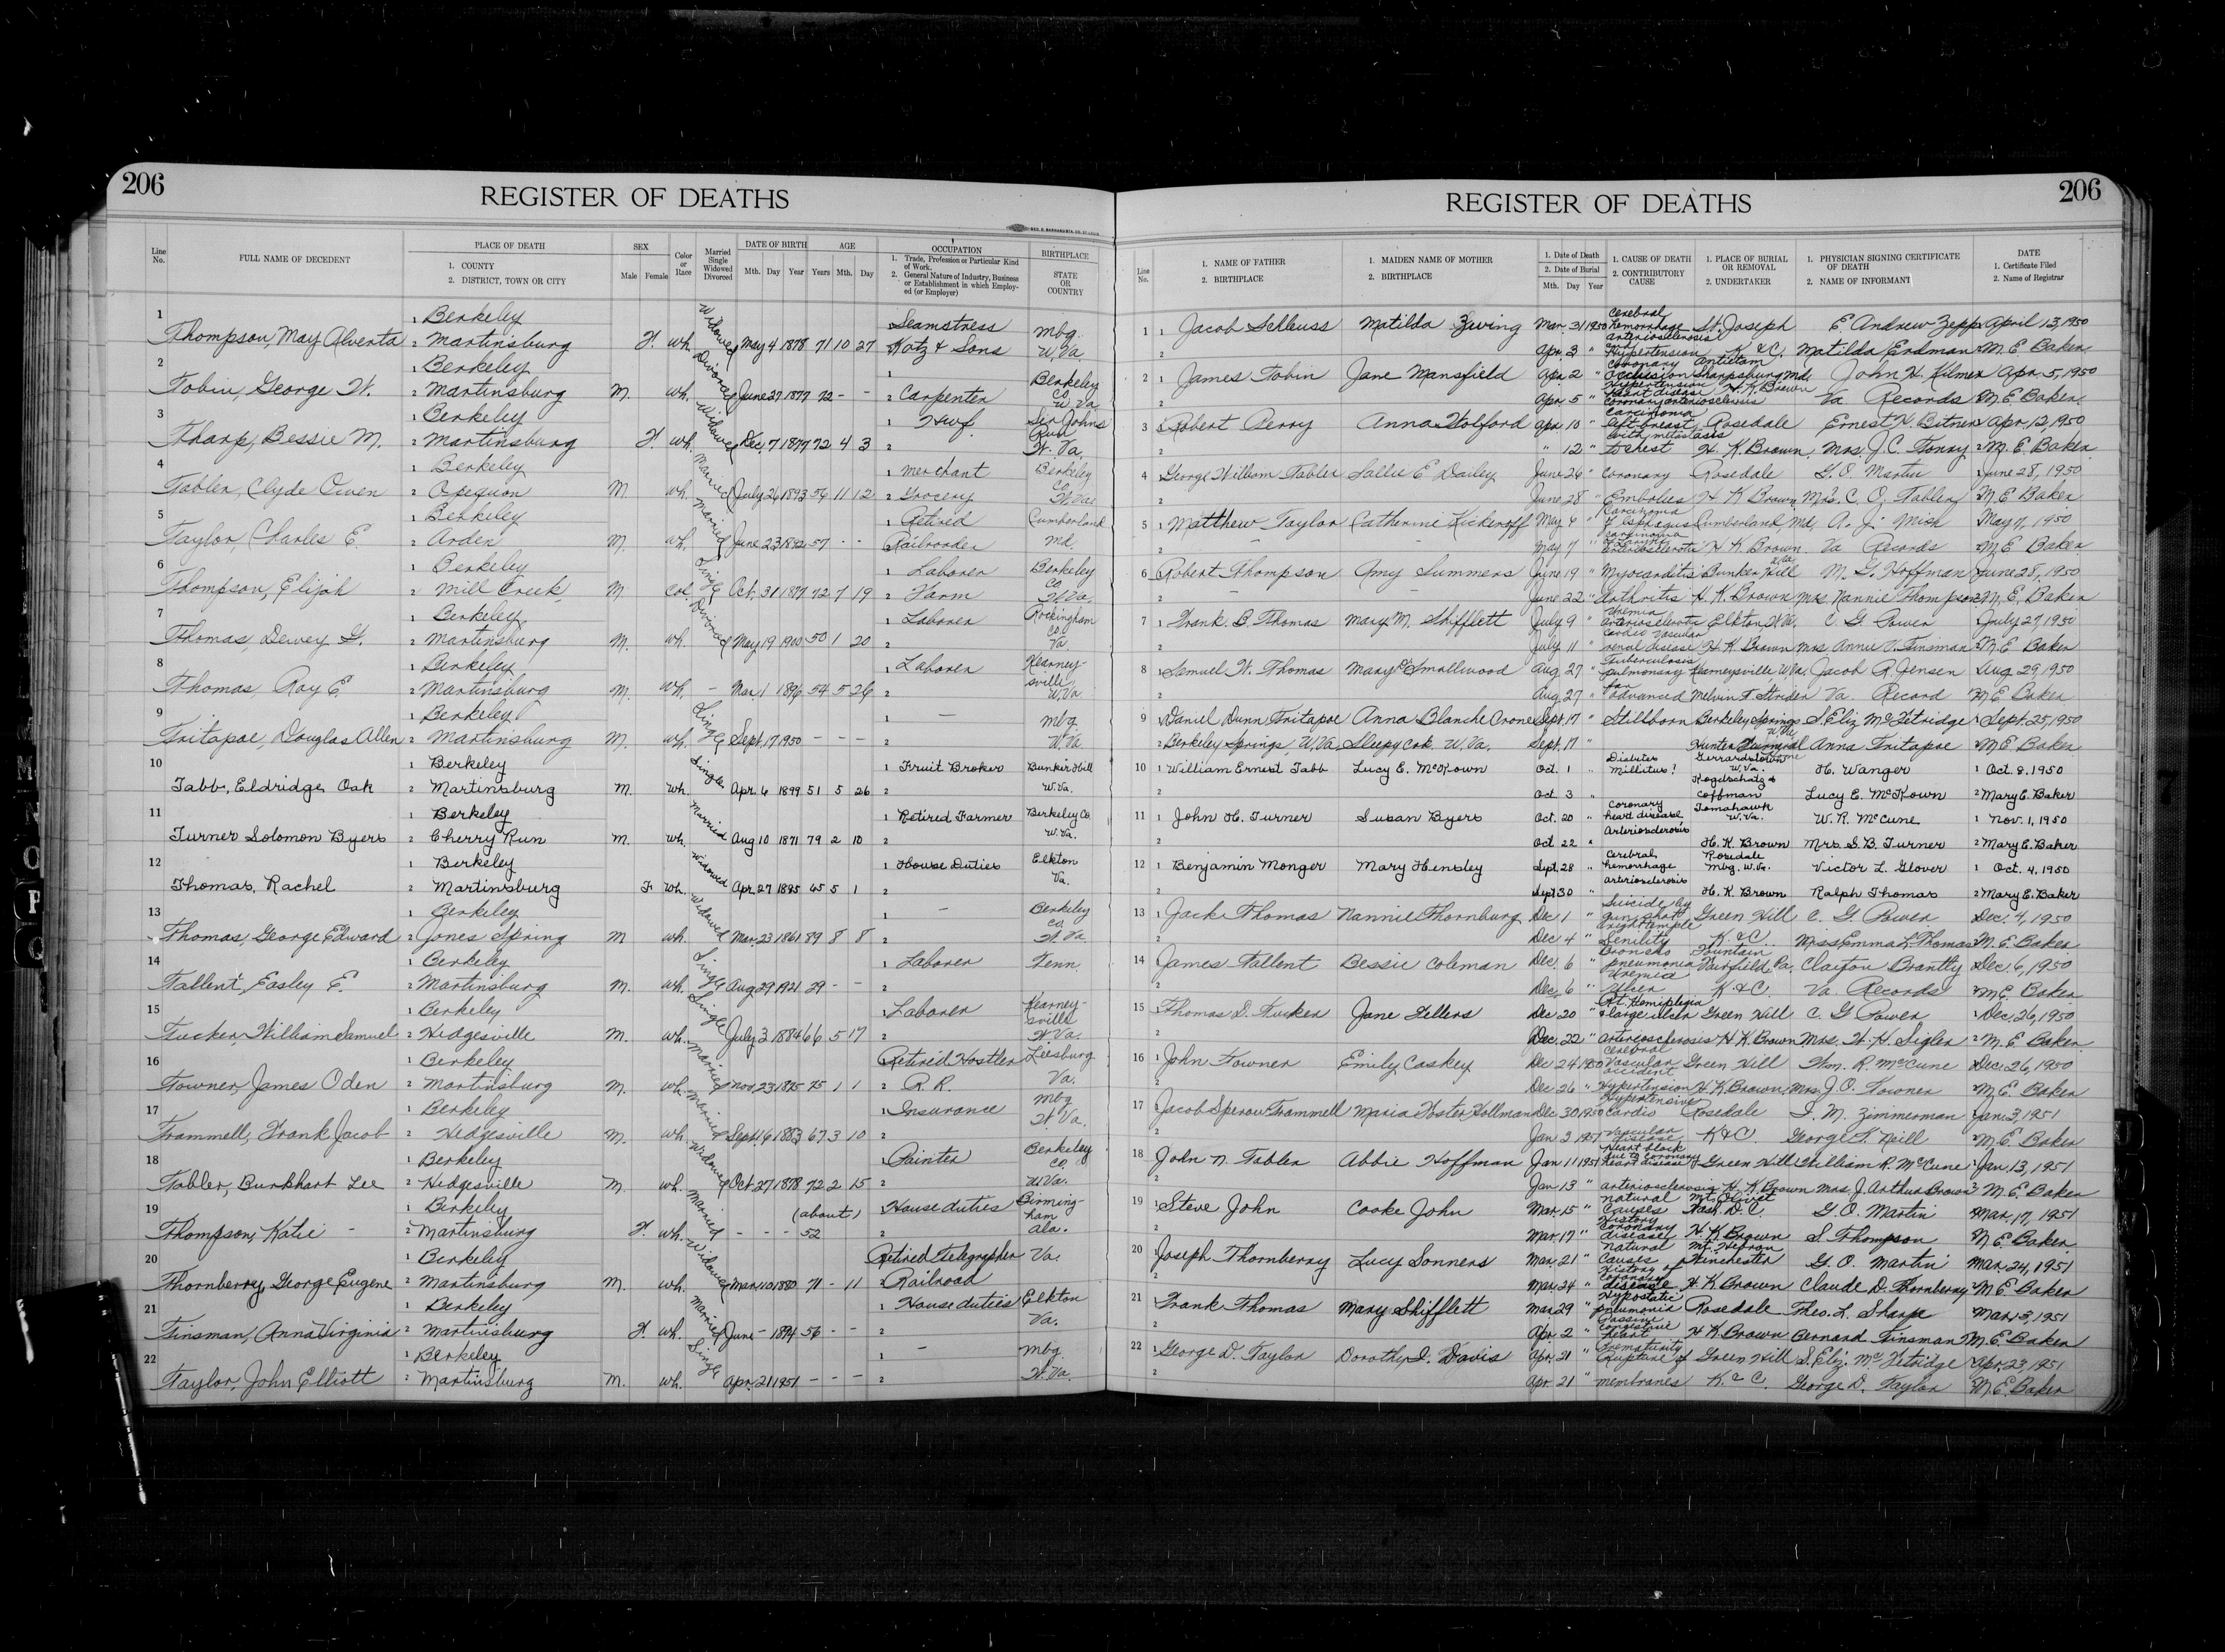 206
REGISTER OF DEATHS
Line No.
FULL NAME OF DECEDENT
PLACE OF DEATH
1. COUNTY
2. DISTRICT, TOWN OR CITY
SEX
Male Female
Color or Race
Married Single Widowed Divorced
DATE OF BIRTH
Mth. Day Year
AGE
Years Mth. Day
OCCUPATION
1. Trade, Profession or Particular Kind of Work.
2. General Nature of Industry, Business or Establishment in which Employed (or Employer)
BIRTHPLACE
STATE OR COUNTRY
1 Thompson, May Alverta 1 Berkeley 2 Martinsburg F. wh. Widowed May 4 1878 71 10 27 Seamstress Katz & Sons Mbg. W.Va.
2 Tobin, George W. 1 Berkeley 2 Martinsburg M. wh. Divorced June 27 1877 72 - - 1 2 Carpenter Berkeley Co. W.Va.
3 Tharp, Bessie M. 1 Berkeley 2 Martinsburg F. wh. Widowed Dec. 7 1877 72 4 3 1 Hwf. 2 Sir Johns Run W.Va.
4 Tabler, Clyde Owen 1 Berkeley 2 Opequon M. wh. Married July 26 1893 56 11 12 1 Merchant 2 Grocery Berkeley Co. W.Va.
5 Taylor, Charles E. 1 Berkeley 2 Arden M. wh. Married June 23 1892 57 - - 1 Retired Railroader Cumberland Md.
6 Thompson, Elijah 1 Berkeley 2 Mill Creek M. Col. Single Oct. 31 1877 72 7 19 1 Laborer 2 Farm Berkeley Co. W.Va.
7 Thomas, Dewey G. 1 Berkeley 2 Martinsburg M. wh. Divorced May 19 1900 50 1 20 1 Laborer 2 Rockingham Co. Va.
8 Thomas, Roy E. 1 Berkeley 2 Martinsburg M. wh. - Mar. 1 1896 54 5 26 1 Laborer 2 Kearneysville W.Va.
9 Tritapoe, Douglas Allen 1 Berkeley 2 Martinsburg M. wh. Single Sept. 17 1950 - - - 1 - 2 Mbg. W.Va.
10 Tabb, Eldridge Oak 1 Berkeley 2 Martinsburg M. wh. Single Apr. 6 1899 51 5 26 1 Fruit Broker 2 Bunker Hill W.Va.
11 Turner Solomon Byers 1 Berkeley 2 Cherry Run M. wh. Married Aug 10 1871 79 2 10 1 Retired Farmer 2 Berkeley Co. W.Va.
12 Thomas, Rachel 1 Berkeley 2 Martinsburg F. wh. Widowed Apr. 27 1885 65 5 1 1 House Duties 2 Elkton Va.
13 Thomas, George Edward 1 Berkeley 2 Jones Spring M wh. Widowed Mar. 23 1861 89 8 8 1 - 2 Berkeley Co. W.Va.
14 Tallent, Easley E. 1 Berkeley 2 Martinsburg M. wh. Single Aug 29 1921 29 - - 1 Laborer 2 Tenn.
15 Tucker, William Samuel 1 Berkeley 2 Hedgesville M. wh. Single July 3 1884 66 5 17 1 Laborer 2 Kearneysville W.Va.
16 Towner, James Oden 1 Berkeley 2 Martinsburg M. wh. Married Nov 23 1875 75 1 1 Retired Hostler 2 R.R. Leesburg Va.
17 Trammell, Frank Jacob 1 Berkeley 2 Hedgesville M. wh. Married Sept. 16 1883 67 3 10 1 Insurance 2 Mbg. W.Va.
18 Tabler, Burkhart Lee 1 Berkeley 2 Hedgesville M. wh. Widowed Oct. 27 1878 72 2 15 1 Painter 2 Berkeley Co. W.Va.
19 Thompson, Katie - 1 Berkeley 2 Martinsburg F. wh. Married - - - (about) 52 House duties 2 Birmingham Ala.
20 Thornberry, George Eugene 1 Berkeley 2 Martinsburg M. wh. Widowed Mar. 10 1880 71 - 11 Retired Telegrapher 2 Railroad Va.
21 Tinsman, Anna Virginia 1 Berkeley 2 Martinsburg F. wh. Married June - 1894 56 - - 1 House duties 2 Elkton Va.
22 Taylor, John Elliott 1 Berkeley 2 Martinsburg M. wh. Single Apr. 21 1951 - - - 1 - 2 Mbg. W.Va.
REGISTER OF DEATHS
206
Line No.
1. NAME OF FATHER
2. BIRTHPLACE
1. MAIDEN NAME OF MOTHER
2. BIRTHPLACE
1. Date of Death
2. Date of Burial
Mth. Day Year
1. CAUSE OF DEATH
2. CONTRIBUTORY CAUSE
1. PLACE OF BURIAL OR REMOVAL
2. UNDERTAKER
1. PHYSICIAN SIGNING CERTIFICATE OF DEATH
2. NAME OF INFORMANT
DATE
1. Certificate Filed
2. Name of Registrar
1 1 Jacob Schleuss Matilda Mar. 31 1950 Cerebral hemorrhage arteriosclerosis St. Joseph E. Andrew Zepp April 13, 1950
2 Apr. 3 " Hypertension K & C. Matilda Erdman M. E. Baker
2 1 James Tobin Jane Mansfield Apr. 2 " Coronary Occlusion Antietam Sharpsburg Md. John H. Kilmer Apr. 5, 1950
2 Apr. 5 " Hypertension heart disease coronary arteriosclerosis H. K. Brown Va. Records M. E. Baker
3 1 Robert Perry Anna Holford Apr. 10 " Carcinoma left breast Rosedale Ernest H. Bitner Apr. 12, 1950
2 " 12 " with metastasis to chest H. K. Brown Mrs. J. C. M. E. Baker
4 George Wilbom Tabler Sallie E Dailey June 26 " Coronary Rosedale G. O. Martin June 28, 1950
2 June 28 " Embolus H K Brown Mrs. C. O. Tabler M. E. Baker
5 1 Matthew Taylor Catherine Kickeroff May 4 " Carcinoma of Esphagus Cumberland Md. A. J. Mish May 7, 1950
2 May 7 " Carcinoma of Larynx H K Brown Va Records M E Baker
6 1 Robert Thompson Amy Summers June 19 " Myocarditis Bunker Hill W.Va. M. G. Hoffman June 28, 1950
2 June 22 " Arthritis H. K. Brown Mrs Nannie Thompson M. E. Baker
7 1 Frank B. Thomas Mary M. Shifflett July 9 " Uremia arteriosclerotic Elkton, C G Power July 27, 1950
2 July 11 " Cardio Vascular renal disease H K Brown Mrs Anna V. Tinsman M. E Baker
8 1 Samuel W. Thomas Mary Smallwood Aug 27 " Tuberculosis pulmonary Kearneysville W.Va. Jacob R Jensen Aug 29, 1950
2 Aug. 27 " far advanced Melvin T. Strider Va. Record M. E Baker
9 1 Daniel Dunn Tritapoe Anna Blanche Crone Sept. 17 " Stillborn Berkeley Springs W.Va. S. Eliz. McFetridge 1 Sept. 25, 1950
2 Berkeley Springs W.Va. Sleepy Crk. W.Va. Sept. 17 " Hunter Funeral Home Anna Tritapoe M. E. Baker
10 1 William Ernest Tabb Lucy E. McKown Oct. 1 " Diabetes Millitus? Gerrardstown W.Va. H. Wanger 1 Oct. 8, 1950
2 Oct. 3 " Coffman Lucy E. McKown 2 Mary E. Baker
11 1 John H. Turner Susan Byers Oct. 20 " Coronary heart disease, Tomahawk W.Va. W. R. McCune 1 Nov. 1, 1950
2 Oct 22 " Arteriosclerosis H. K. Brown Mrs. S. B. Turner 2 Mary E. Baker
12 1 Benjamin Monger Mary Hensley Sept. 28 " Cerebral hemorrhage Rosedale Mbg. W.Va. Victor L. Glover 1 Oct. 4, 1950
2 Sept 30 " Arteriosclerosis H. K. Brown Ralph Thomas 2 Mary E. Baker
13 1 Jack Thomas Nannie Thornburg Dec 1 " Suicide by gun shot Green Hill C. G. Power Dec. 4, 1950
2 Dec 4 " Senility K. & C. Miss Emma L. Thomas M. E. Baker
14 James Tallent Bessie Coleman Dec. 6 " Broncho pneumonia Fountain Fairfield Pa. Clayton Brantly Dec. 6, 1950
Dec. 6 " Uremia Ulcer K & C. Va. Records M. E. Baker
15 1 Thomas D. Tucker Jane Fellers Dec 20 " Rt. Hemiplegia large ulcer Green Hill C. G Power Dec. 26, 1950
2 Dec. 22 " arteriosclerosis H K Brown Mrs. W. H. Sigler M. E. Baker
16 1 John Towner Emily Caskey Dec 24 1950 Cerebral Vascular accident Green Hill Wm. R. McCune Dec. 26, 1950
2 Dec 26 " Hypertension H. K. Brown Mrs. J. O. Towner M. E. Baker
17 1 Jacob Sperow Trammell Maria Hoster Hollman Dec 30 1950 Hypertensive Cardio Rosedale I. M. Zimmerman Jan. 3, 1951
2 Jan 3 1951 Vascular disease K & C. George T. Neill M. E. Baker
18 John N. Tabler Abbie Hoffman Jan 11 1951 Heart block due to coronary heart disease Green Hill William R. McCune Jan. 13, 1951
2 Jan 13 " arteriosclerosis H. K. Brown Mrs. J. Arthur Brown M. E. Baker
19 1 Steve John Cooke John Mar. 15 " natural causes Mt. Olivet Wash. D.C. G. O. Martin Mar. 17, 1951
2 Mar. 17 " History coronary disease H. K. Brown S. Thompson M. E. Baker
20 Joseph Thornberry Lucy Sonners Mar. 21 " natural causes Mt. Hebron Winchester G. O. Martin Mar. 24, 1951
2 Mar. 24 " History of coronary disease H K Brown Claude D. Thornberry M. E Baker
21 1 Frank Thomas Mary Shifflett Mar 29 " Hypostatic pneumonia Rosedale Theo. L. Sharpe Mar. 13, 1951
2 Apr. 2 " Passive congestive heart H K Brown Bernard Tinsman M. E. Baker
22 1 George D. Taylor Dorothy I. Davis Apr. 21 " Prematurity Rupture of Green Hill S. Eliz. McFetridge Apr. 23, 1951
2 Apr. 21 " membranes K. & C. George D. Taylor M. E. Baker